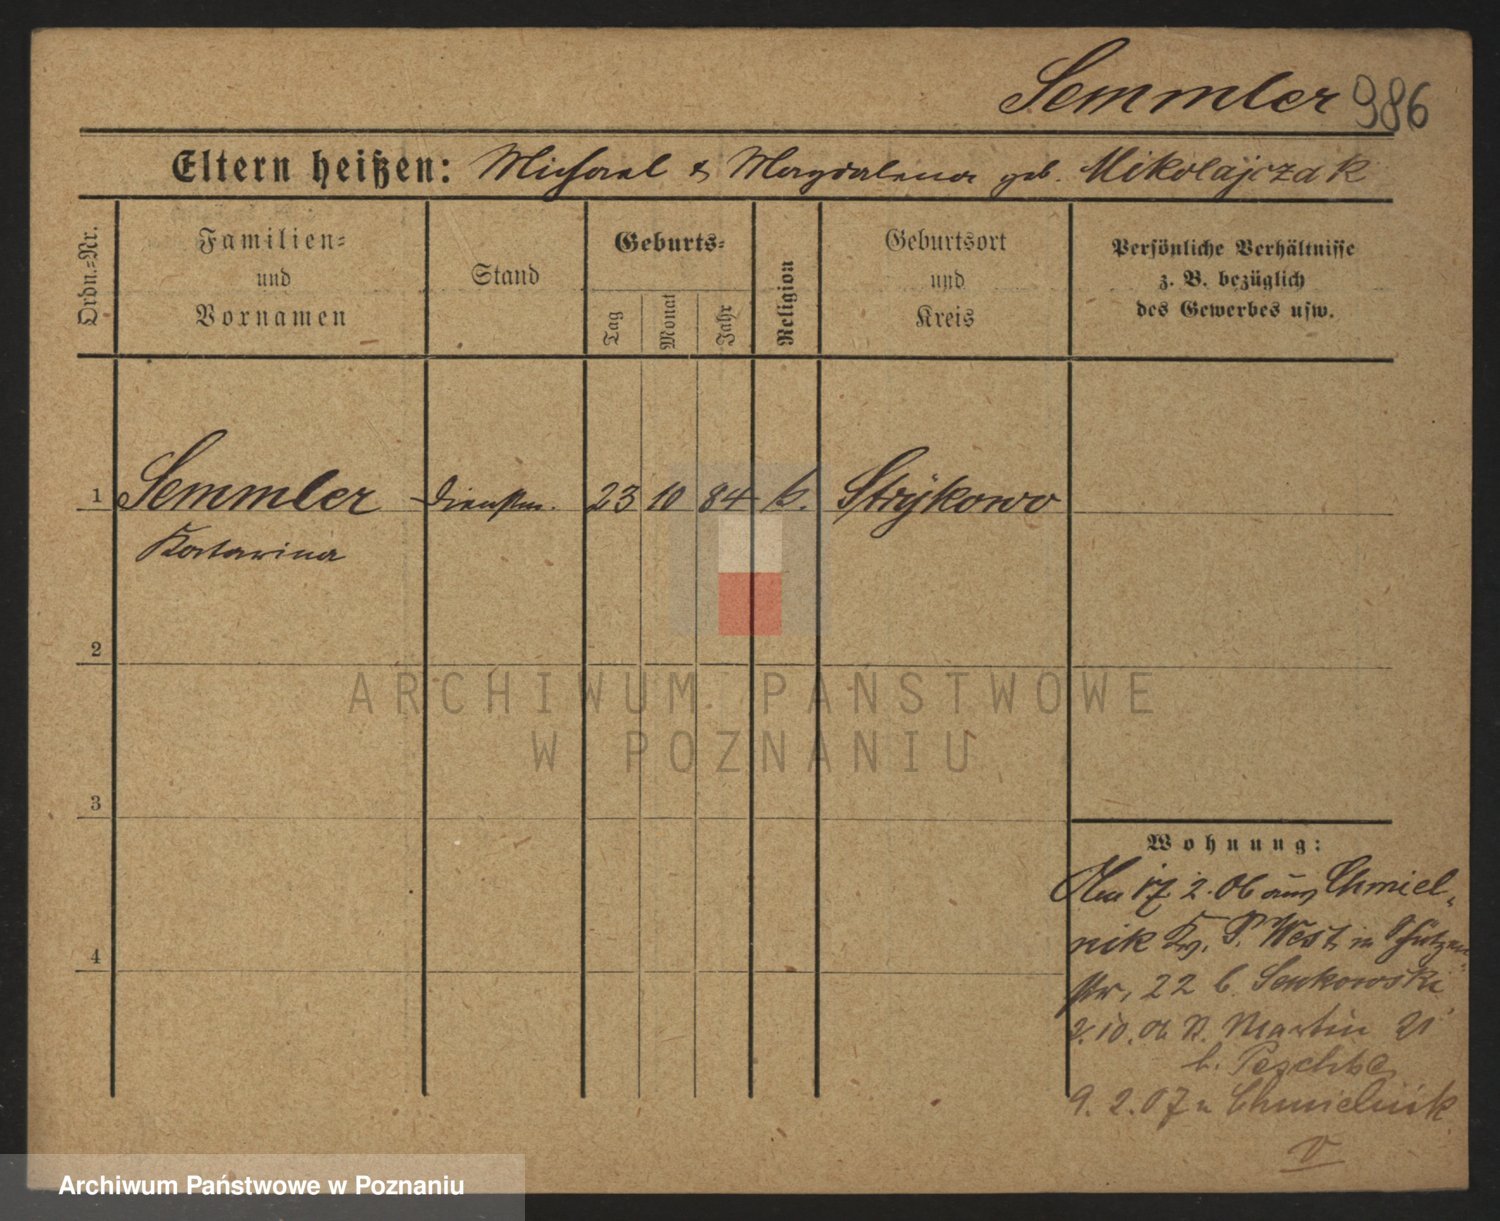 Semmler 986
Eltern heißen: Michael & Magdalena geb. Mikolajczak
Ordn.=Nr.
Familien=
und
Vornamen
Stand
Geburts=
Tag
Monat
Jahr
Religion
Geburtsort
und
Kreis
Persönliche Verhältnisse
z. B. bezüglich
des Gewerbes usw.
1 Semmler Dienstm. 23 10 84 k. Strykowo
Katarina
2
3
4
Wohnung:
Am 17. 2. 06 aus Chmiel-
nik Kr. P. West, in Schützen-
str, 22 b. Senkowski
2. 10. 06 St. Martin 21
b. Peschke
9. 2. 07 n Chmielnik
ARCHIWUM PAŃSTWOWE
W POZNANIU
Archiwum Państwowe w Poznaniu